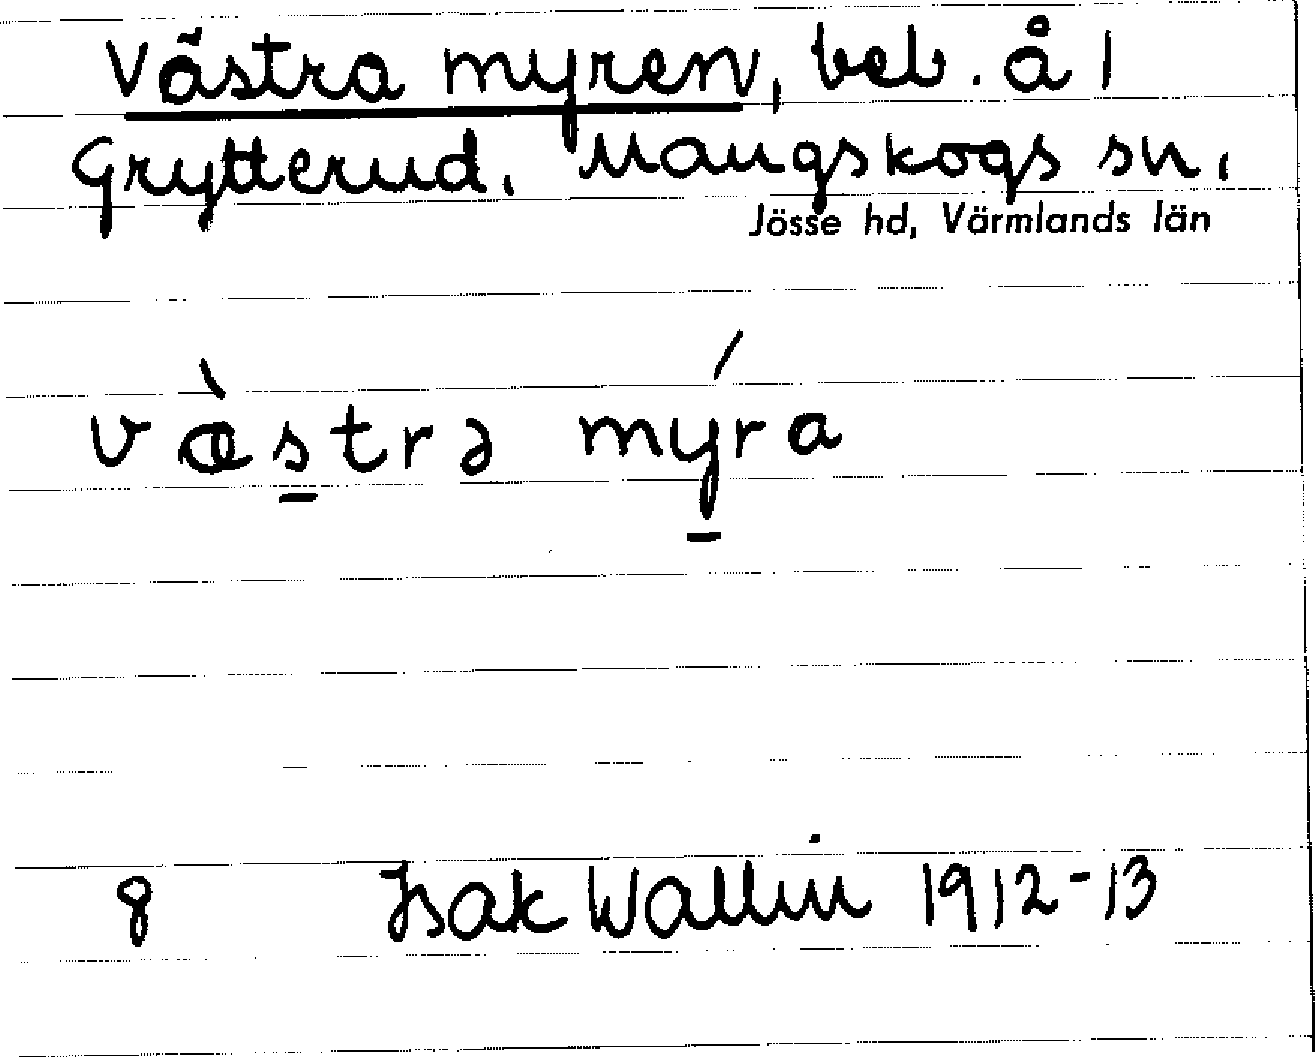 Västra myren, beb. å 1
Grytterud. Mangskogs sn.
Jösse hd, Värmlands län
væ̀strə mýra
8 Isak Wallin 1912-13